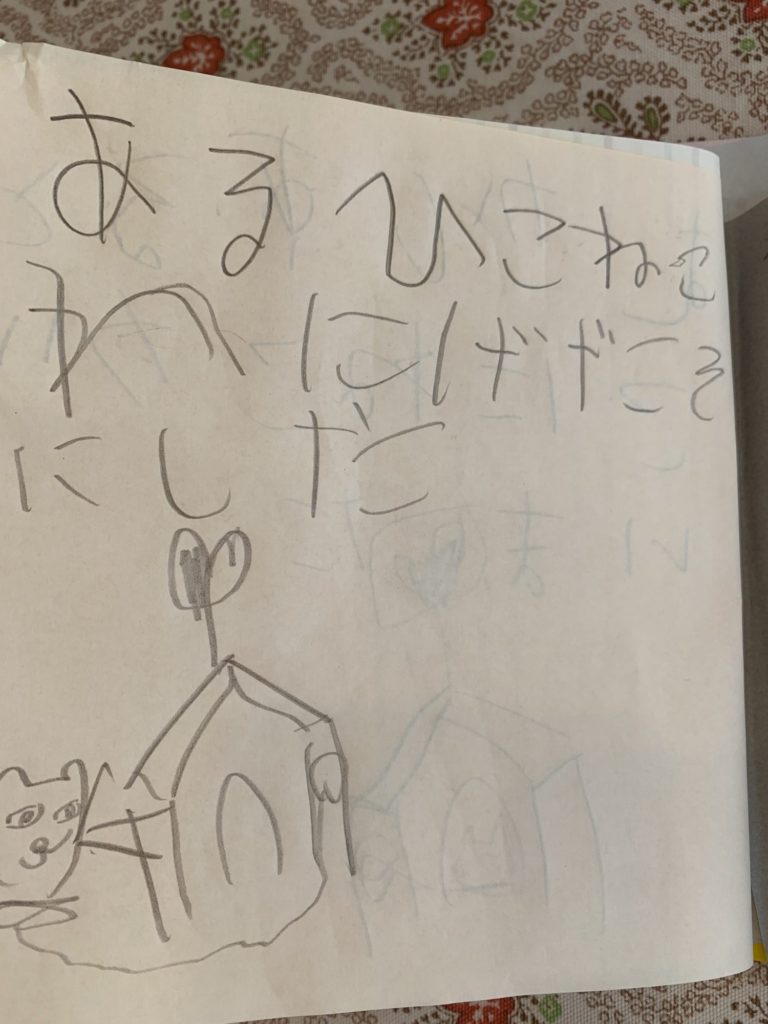 あるひこねこ
わにげだそ
にしだ